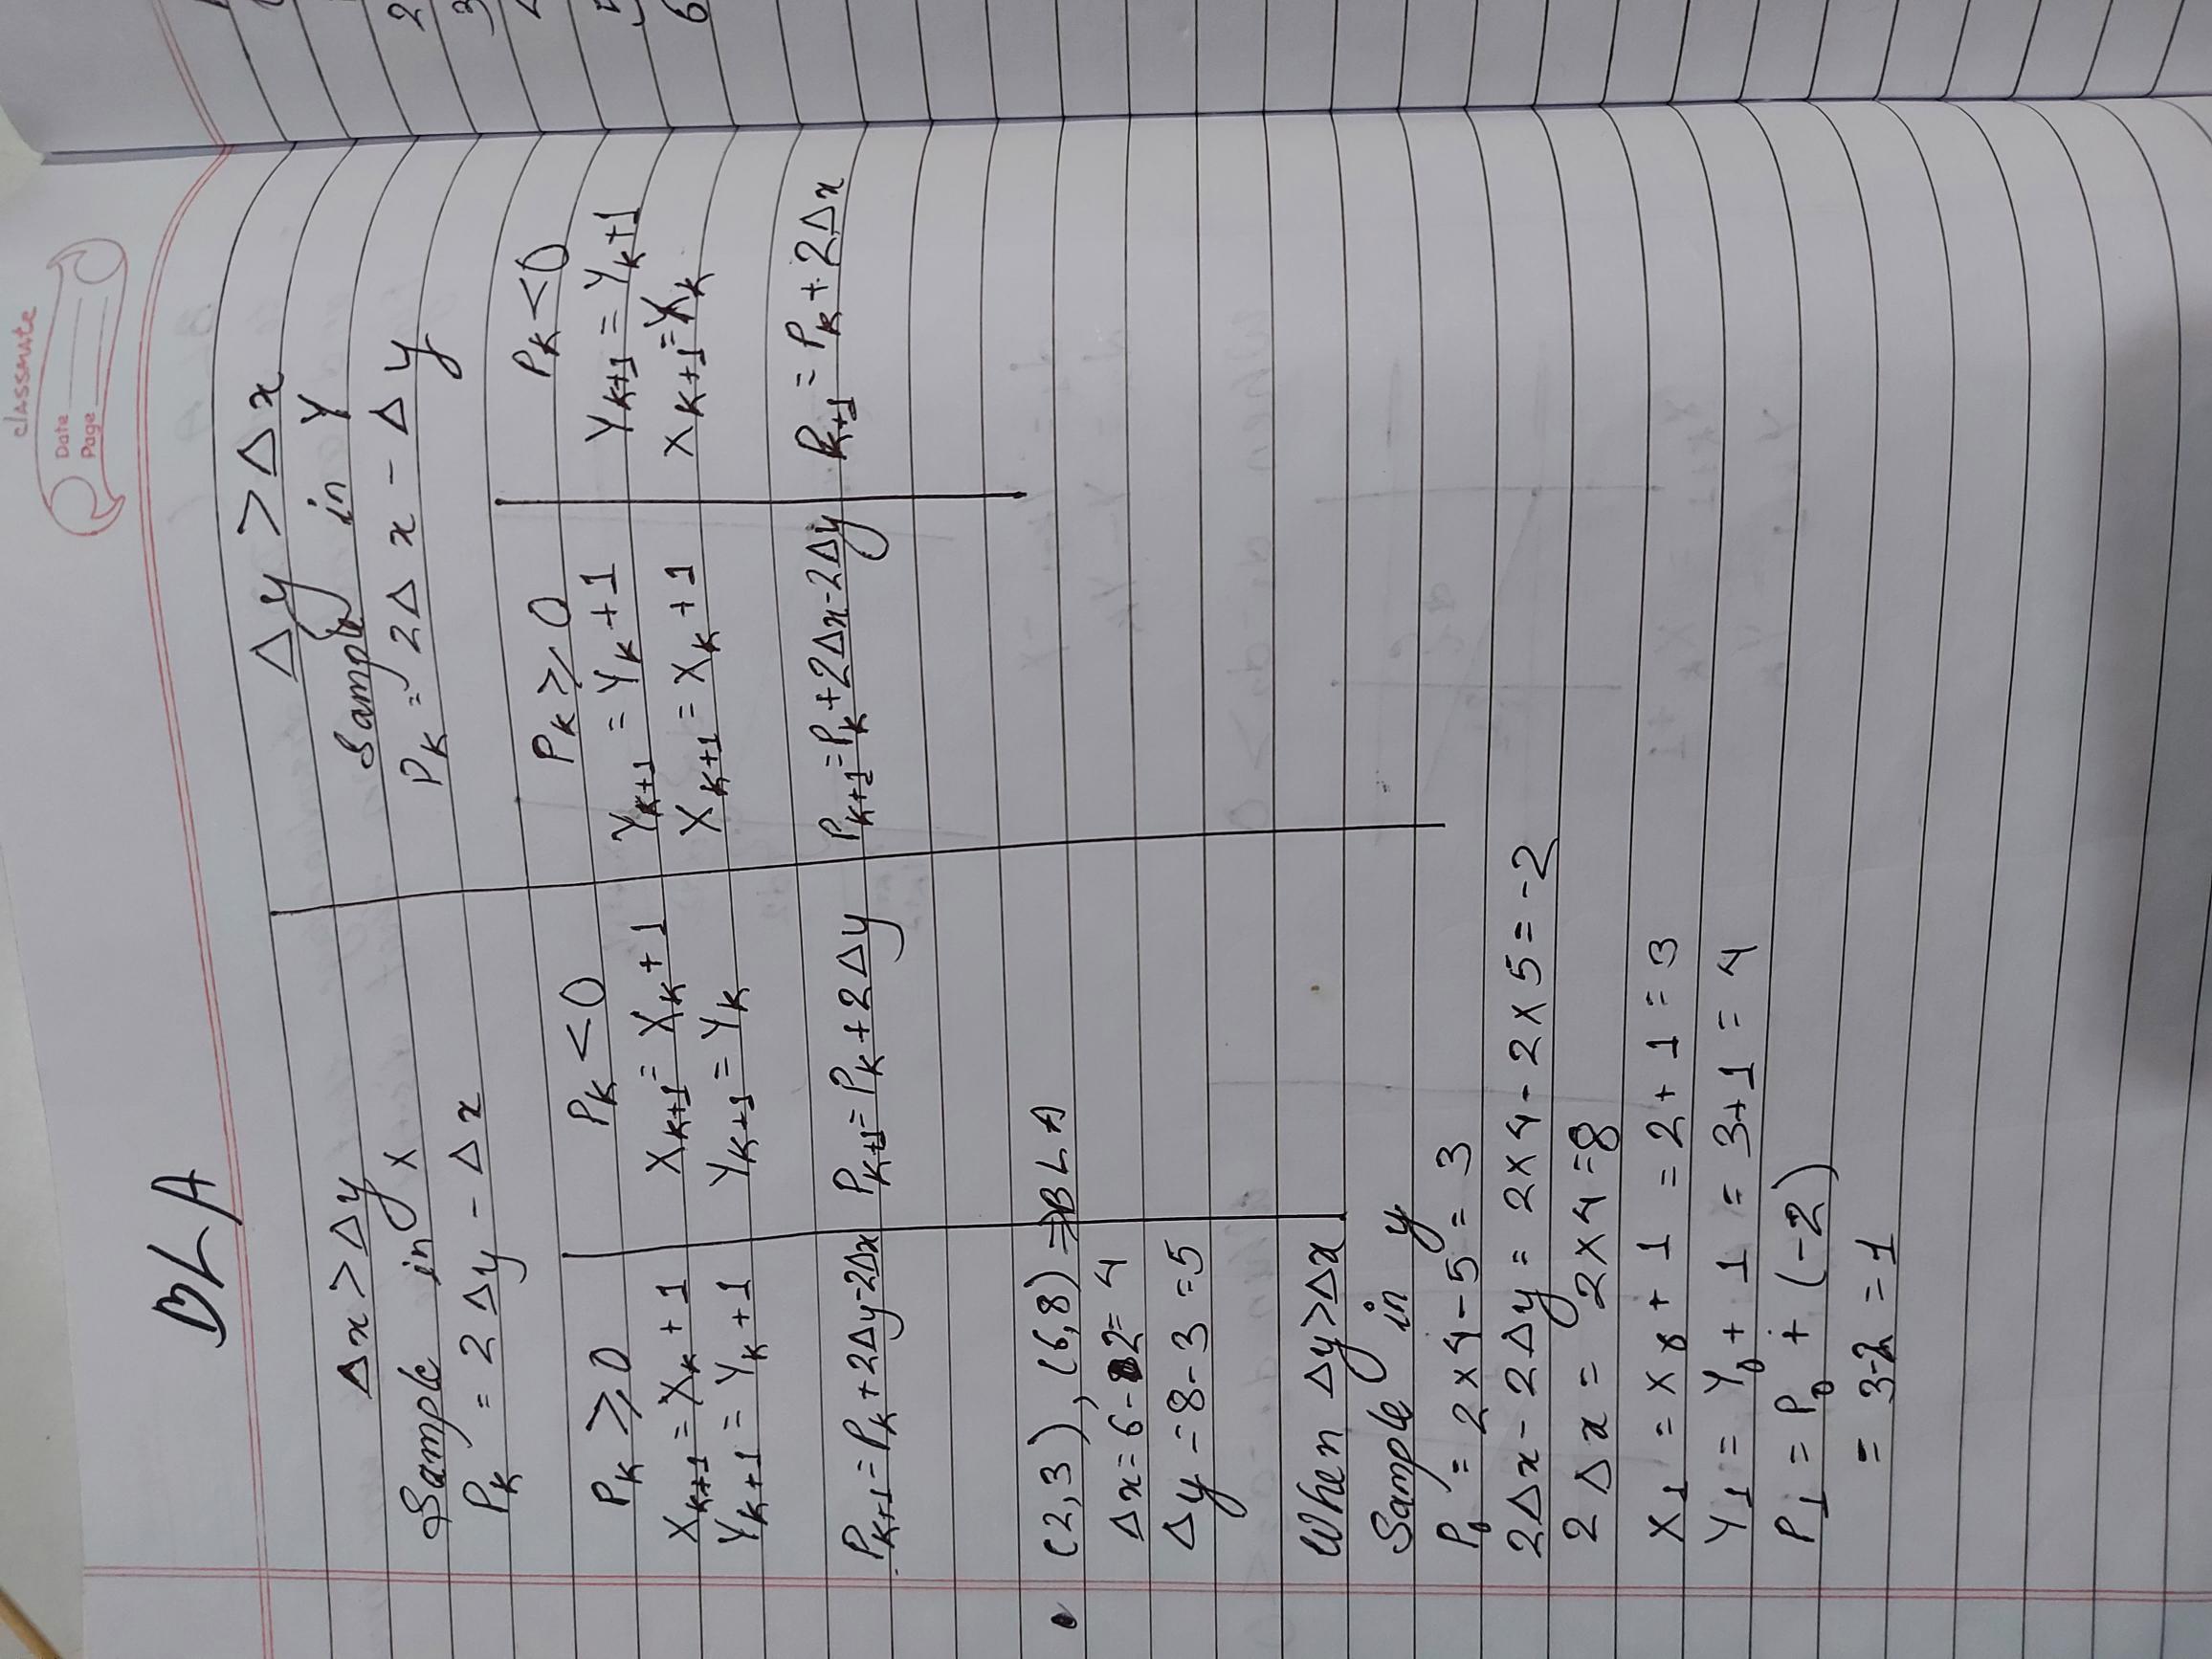 classmate
Date
Page
BLA
Δx > Δy
Sample in x
PK = 2Δy - Δx
PK ≥ 0
XK+1 = XK + 1
YK+1 = YK + 1
PK+1 = PK + 2Δy - 2Δx
PK < 0
XK+1 = XK + 1
YK+1 = YK
PK+1 = PK + 2Δy
Δy > Δx
Sample in Y
PK = 2Δx - Δy
PK ≥ 0
YK+1 = YK + 1
XK+1 = XK + 1
PK+1 = PK + 2Δx - 2Δy
PK < 0
YK+1 = YK+1
XK+1 = XK
PK+1 = PK + 2Δx
(2,3), (6,8) ⇒ BLA
Δx = 6-2 = 4
Δy = 8-3 = 5
When Δy > Δx
Sample in y
P0 = 2x4-5 = 3
2Δx - 2Δy = 2x4 - 2x5 = -2
2Δx = 2x4 = 8
X1 = X0 + 1 = 2+1 = 3
Y1 = Y0 + 1 = 3+1 = 4
P1 = P0 + (-2)
= 3-2 = 1
2
3
5
6